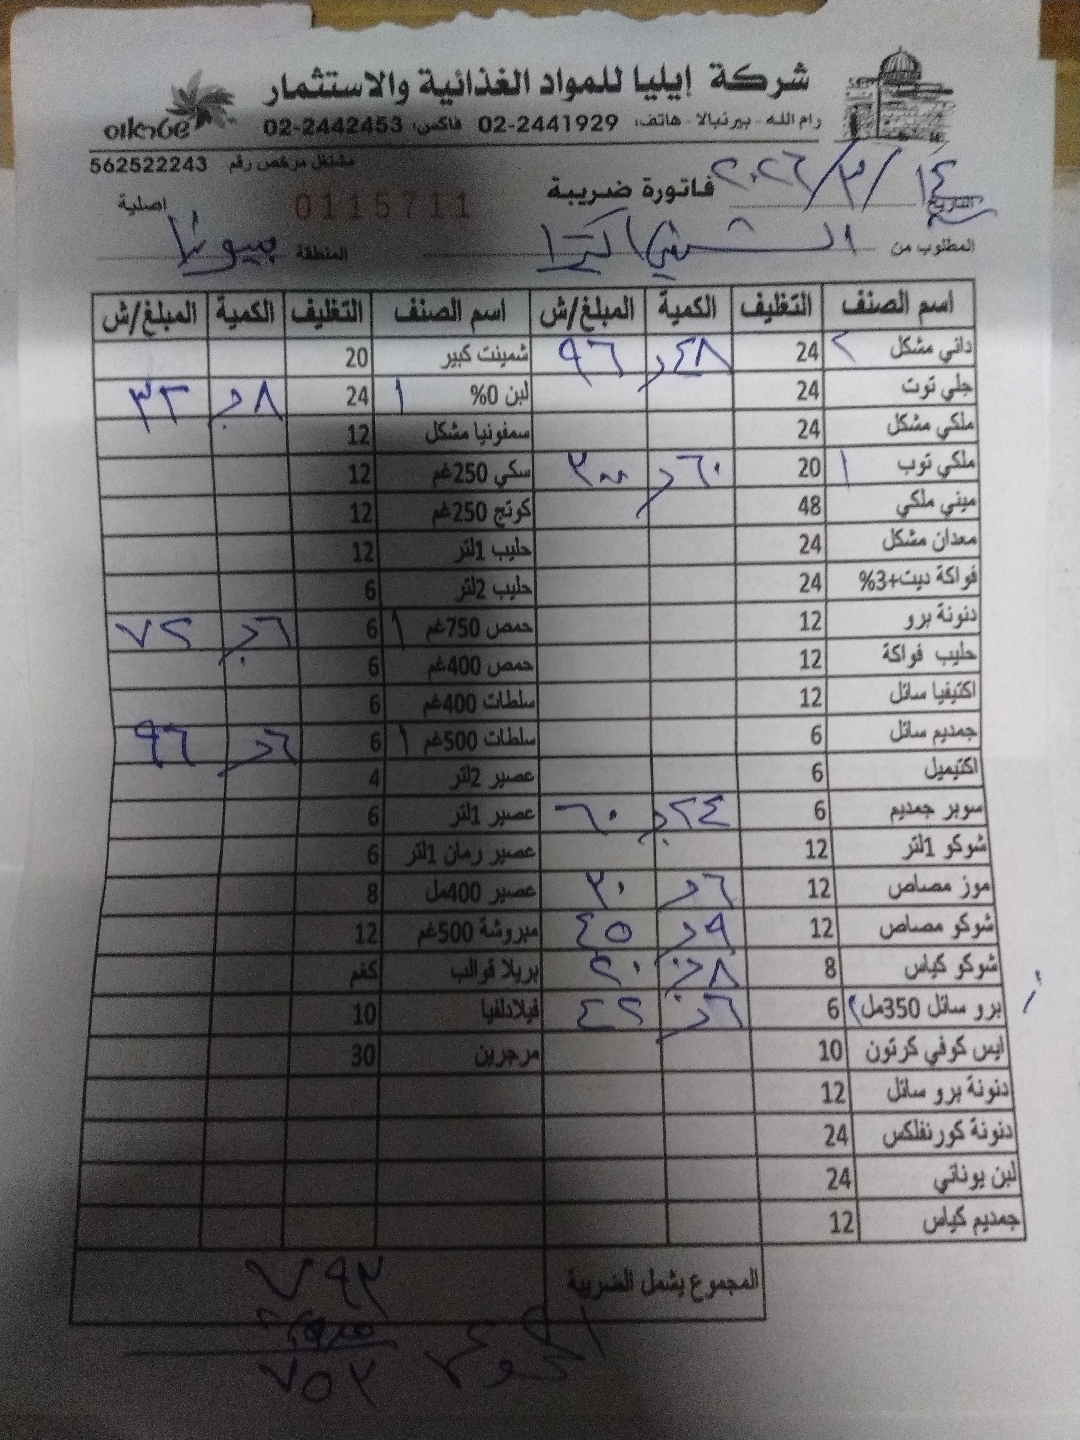 شركة إيليا للمواد الغذائية والاستثمار
رام الله - بيرنبالا - هاتف: 02-2441929 فاكس: 02-2442453
مشتغل مرخص رقم 562522243
שטראוס
فاتورة ضريبة
التاريخ ١٤/٣/٢٠٢٦
0115711
اصلية
المطلوب من
المنطقة
اسم الصنف التغليف الكمية المبلغ/ش اسم الصنف التغليف الكمية المبلغ/ش
داني مشكل ٢ 24 ٤٨ ٩٦ شمينت كبير 20
جلي توت 24 لبن 0% ١ 24 ٨ ٣٢
ملكي مشكل 24 سمفونيا مشكل 12
ملكي توب ١ 20 ٦٠ ٣٠٠ سكي 250غم 12
ميني ملكي 48 كوتج 250غم 12
معدان مشكل 24 حليب 1لتر 12
فواكة ديت+3% 24 حليب 2لتر 6
دنونة برو 12 حمص 750غم ١ 6 ٦ ٧٢
حليب فواكة 12 حمص 400غم 6
اكتيفيا سائل 12 سلطات 400غم 6
جمديم سائل 6 سلطات 500غم ١ 6 ٦ ٩٦
اكتيميل 6 عصير 2لتر 4
سوبر جمديم 6 ٢٤ ٦٠ عصير 1لتر 6
شوكو 1لتر 12 عصير رمان 1لتر 6
موز مصاص 12 ٦ ٣٠ عصير 400مل 8
شوكو مصاص 12 ٩ ٤٥ مبروشة 500غم 12
شوكو كياس 8 ٨ ٢٠ بريلا قوالب كغم
برو سائل 350مل 6 ٦ ٤٢ فيلادلفيا 10
ايس كوفي كرتون 10 مرجرين 30
دنونة برو سائل 12
دنونة كورنفلكس 24
لبن يوناني 24
جمديم كياس 12
المجموع يشمل الضريبة ٧٩٣
٧٥٣